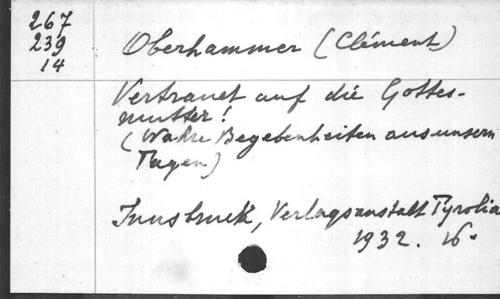 267
239
14
Oberhammer (Clément)
Vertrauet auf die Gottes-
mutter!
(Wahre Begebenheiten aus unsern
Tagen)
Innsbruck, Verlagsanstalt Tyrolia
1932. 16°